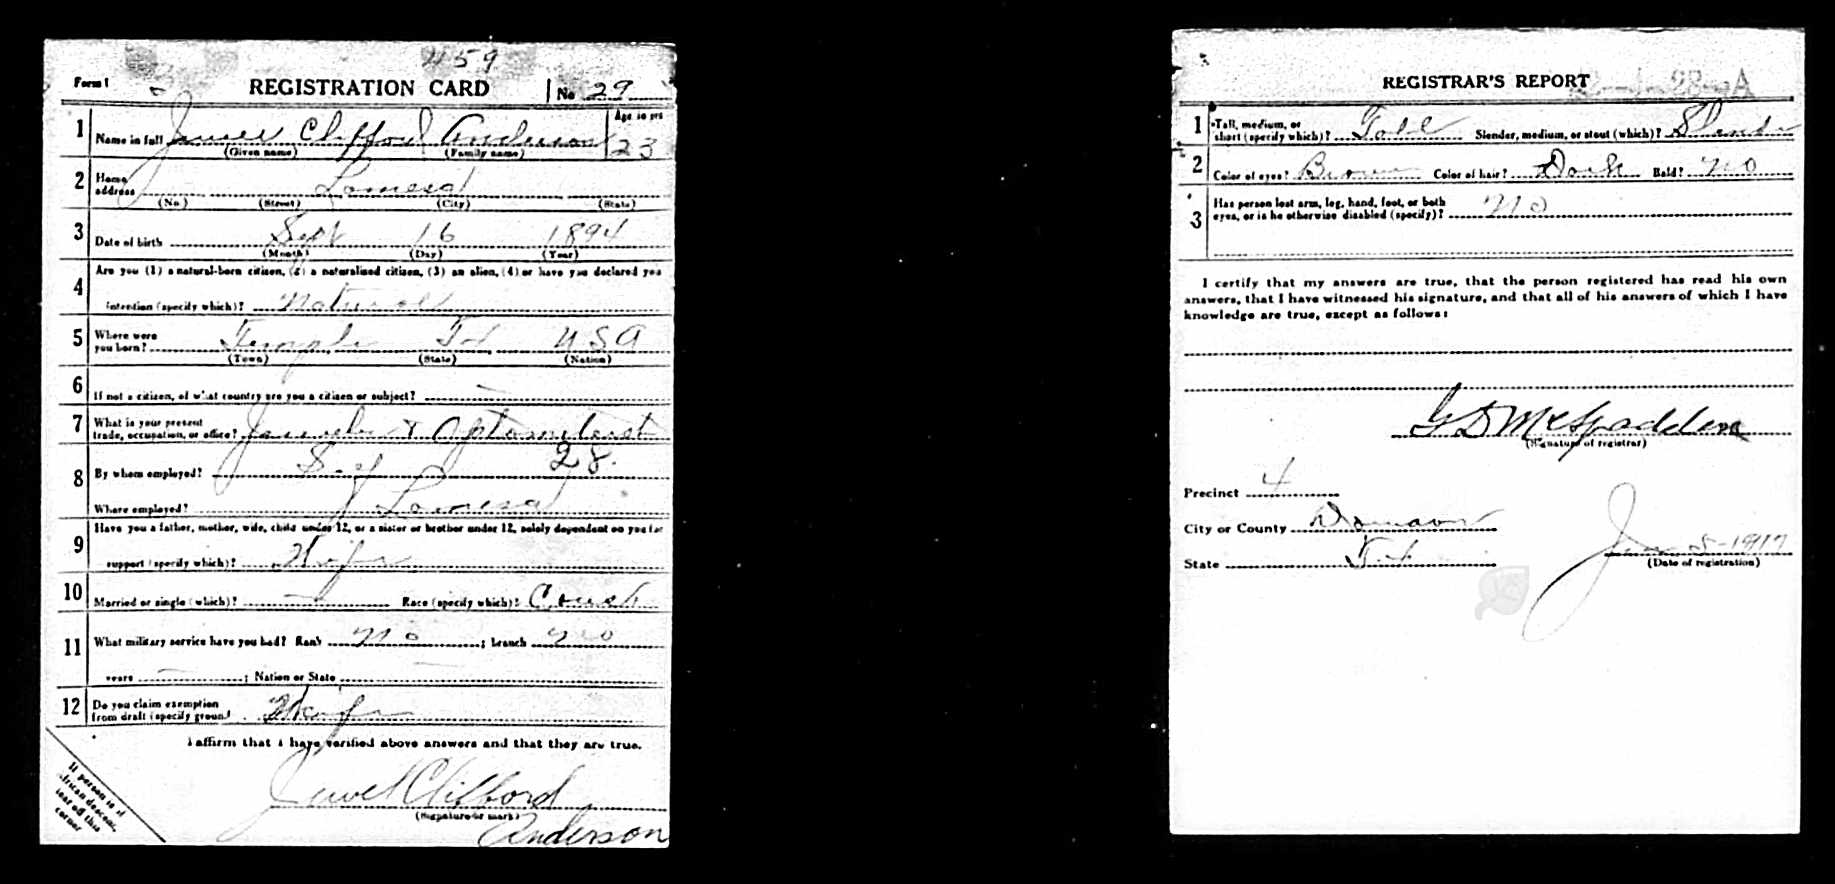 459
Form 1 REGISTRATION CARD No 29
1 Name in full Jewel Clifford Anderson Age in yrs 23
(Given name) (Family name)
2 Home address Lamesa
(No.) (Street) (City) (State)
3 Date of birth Sept 16 1894
(Month) (Day) (Year)
Are you (1) a natural-born citizen, (2) a naturalized citizen, (3) an alien, (4) or have you declared your
4 intention (specify which)? Natural
5 Where were you born? Temple Tx USA
(Town) (State) (Nation)
6 If not a citizen, of what country are you a citizen or subject?
7 What is your present trade, occupation, or office? Jeweler & Optometrist
28.
8 By whom employed? Self
Where employed? Lamesa
Have you a father, mother, wife, child under 12, or a sister or brother under 12, solely dependent on you for
9 support (specify which)? Wife
10 Married or single (which)? Race (specify which)?
11 What military service have you had? Rank No ; branch no
years ; Nation or State
12 Do you claim exemption from draft (specify grounds) Wife
I affirm that I have verified above answers and that they are true.
Jewel Clifford
(Signature or mark)
Anderson
If person is of
African descent,
tear off this
corner
REGISTRAR'S REPORT
1 Tall, medium, or short (specify which)? Tall Slender, medium, or stout (which)? Slender
2 Color of eyes? Brown Color of hair? Dark Bald? No
3 Has person lost arm, leg, hand, foot, or both eyes, or is he otherwise disabled (specify)? No
I certify that my answers are true, that the person registered has read his own
answers, that I have witnessed his signature, and that all of his answers of which I have
knowledge are true, except as follows:
G D McSpadden
(Signature of registrar)
Precinct 4
City or County Dawson
State Tx
June 5-1917
(Date of registration)